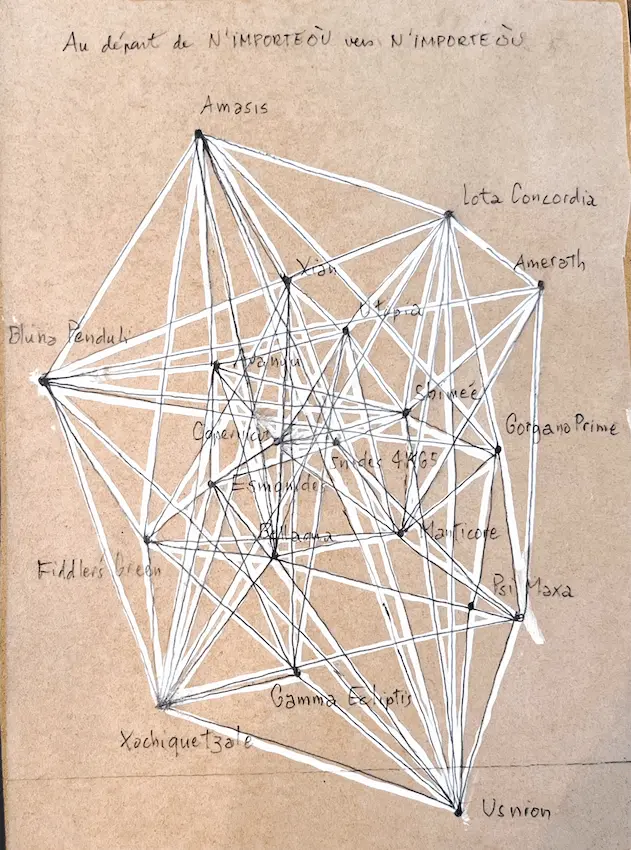 Au départ de N'IMPORTEOÙ vers N'IMPORTEOÙ
Amasis
Lota Concordia
Amerath
Xian
Utopia
Bluha Penduli
Avanyu
Shimeé
Gorgano Prime
Copernicus
Snides 41K65
Esmguides
Bellaqua
Manticore
Fiddler's Green
Psi Maxa
Gamma Ecliptis
Xochiquetzale
Usnion